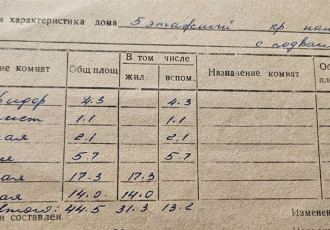 я характеристика дома 5 этажный кр. пан
с подвал
ие комнат Общ площ В том числе Назначение комнат Об пл
жил. вспом.
идор 4.3 4.3
1.1 1.1
ая 2.1 2.1
я 5.7 5.7
ая 17.3 17.3
ая 14.0 14.0
Итого: 44.5 31.3 13.2
н составлен Изменени